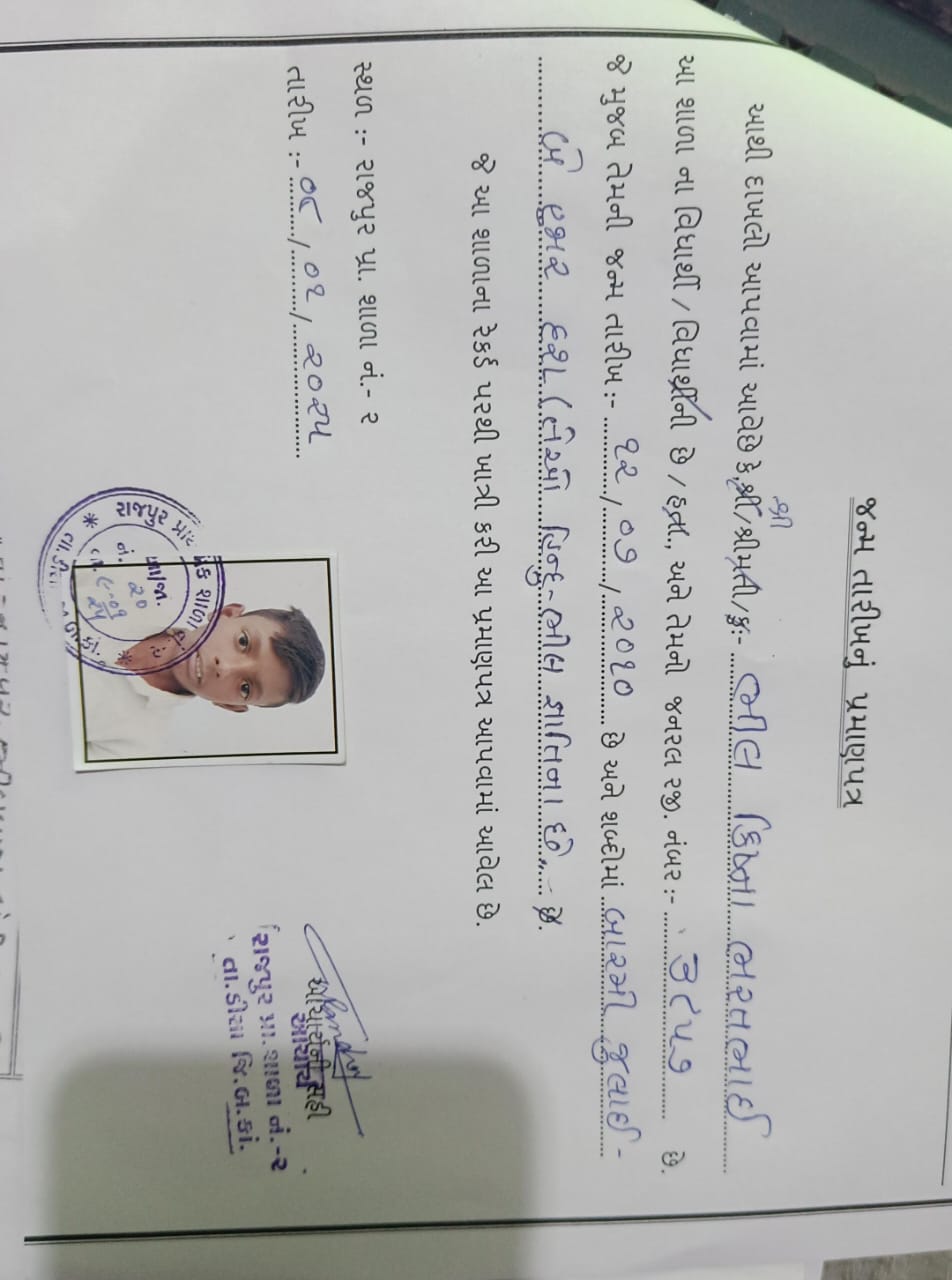 જન્મ તારીખનું પ્રમાણપત્ર
શ્રી
આથી દાખલો આપવામાં આવેછે કે શ્રી/શ્રીમતી/કુ:- ભીલ ક્રિષ્ના ભરતભાઈ
આ શાળા ના વિધાર્થી / વિધાર્થીની છે / હતા, અને તેમનો જનરલ રજી. નંબર :- ૩૮૫૭ છે.
જે મુજબ તેમની જન્મ તારીખ:- ૧૨ / ૦૭ / ૨૦૧૦ છે અને શબ્દોમાં બારમી જુલાઈ -
બે હજાર દશ હિન્દુ-ભીલ જ્ઞાતિના છે. છે.
જે આ શાળાના રેકર્ડ પરથી ખાત્રી કરી આ પ્રમાણપત્ર આપવામાં આવેલ છે.
સ્થળ :- રાજપુર પ્રા. શાળા નં.- ૨
તારીખ :- ૦૮ / ૦૧ / ૨૦૨૫
આચાર્યની સહી
આચાર્ય
રાજપુર પ્રા. શાળા નં.-૨
તા.ડીસા જિ.બ.કાં.
રાજપુર
શાળા
નં.